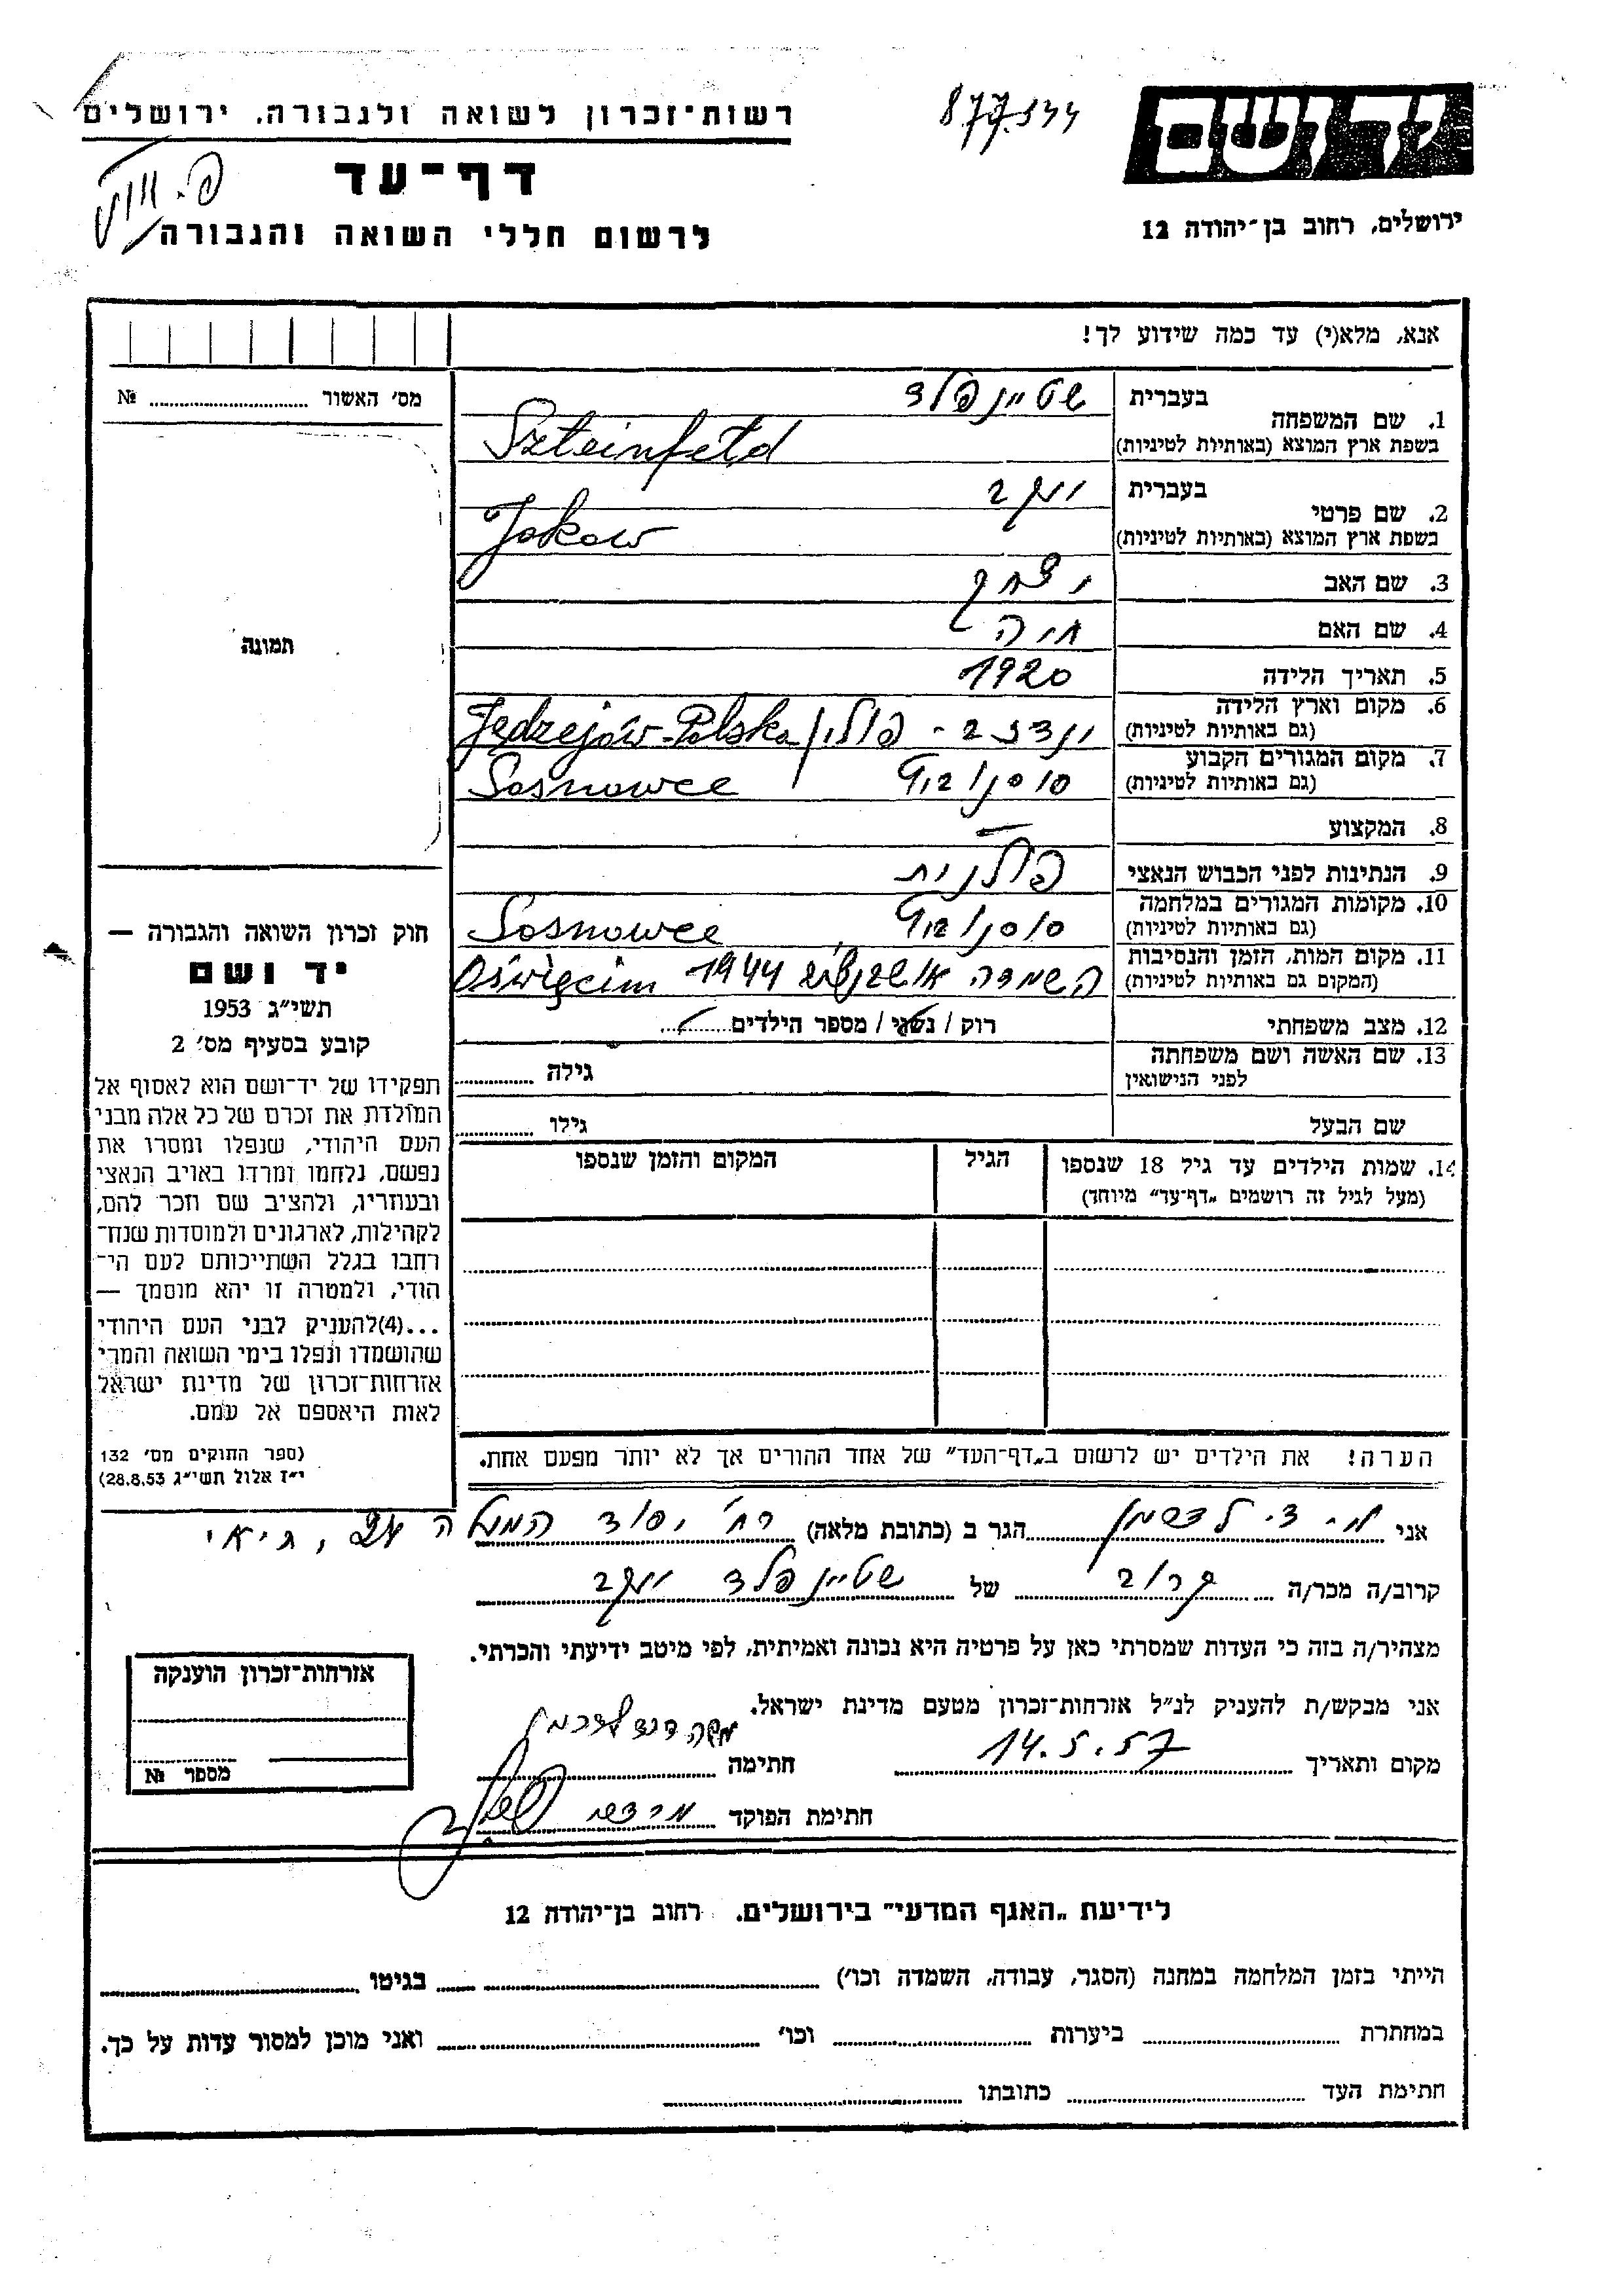 רשות־זכרון לשואה ולגבורה, ירושלים
דף־עד
לרשום חללי השואה והגבורה
יד ושם
ירושלים, רחוב בן־יהודה 12
אנא, מלא(י) עד כמה שידוע לך!
מס׳ האשור № 
תמונה
1. שם המשפחה בעברית שטיינפלד
בשפת ארץ המוצא (באותיות לטיניות) Szteinfeld
2. שם פרטי בעברית יעקב
בשפת ארץ המוצא (באותיות לטיניות) Jakow
3. שם האב יצחק
4. שם האם חיה
5. תאריך הלידה 1920
6. מקום וארץ הלידה
(גם באותיות לטיניות) פולין Jędrzejów-Polska
7. מקום המגורים הקבוע
(גם באותיות לטיניות) סוסנוביץ Sosnowce
8. המקצוע —
9. הנתינות לפני הכבוש הנאצי פולנית
10. מקומות המגורים במלחמה
(גם באותיות לטיניות) סוסנוביץ Sosnowce
11. מקום המות, הזמן והנסיבות
(המקום גם באותיות לטיניות) השמדה אושבינצים 1944 Oświęcim
12. מצב משפחתי רוק / נשוי / מספר הילדים
13. שם האשה ושם משפחתה
לפני הנישואין גילה
שם הבעל גילו
14. שמות הילדים עד גיל 18 שנספו הגיל המקום והזמן שנספו
(מעל לגיל זה רושמים „דף־עד״ מיוחד)
הערה! את הילדים יש לרשום ב„דף־העד״ של אחד ההורים אך לא יותר מפעם אחת.
חוק זכרון השואה והגבורה —
יד ושם
תשי״ג 1953
קובע בסעיף מס׳ 2
תפקידו של יד־ושם הוא לאסוף אל
המולדת את זכרם של כל אלה מבני
העם היהודי, שנפלו ומסרו את
נפשם, נלחמו ומרדו באויב הנאצי
ובעוזריו, ולהציב שם וזכר להם,
לקהילות, לארגונים ולמוסדות שנח־
רחבו בגלל השתייכותם לעם הי־
הודי, ולמטרה זו יהא מוסמך —
...(4)להעניק לבני העם היהודי
שהושמדו ונפלו בימי השואה והמרי
אזרחות־זכרון של מדינת ישראל
לאות היאספם אל עמם.
(ספר החוקים מס׳ 132
י״ז אלול תשי״ג 28.8.53)
אני הגר ב (כתובת מלאה) רח׳ יסוד המעלה
קרוב/ה מכר/ה קרוב של שטיינפלד יעקב
מצהיר/ה בזה כי העדות שמסרתי כאן על פרטיה היא נכונה ואמיתית, לפי מיטב ידיעתי והכרתי.
אני מבקש/ת להעניק לנ״ל אזרחות־זכרון מטעם מדינת ישראל.
מקום ותאריך 14.5.57 חתימה
חתימת הפוקד
אזרחות־זכרון הוענקה
מספר №
לידיעת „האגף המדעי״ בירושלים, רחוב בן־יהודה 12
הייתי בזמן המלחמה במחנה (הסגר, עבודה, השמדה וכו׳) בגיטו
במחתרת ביערות וכו׳ ואני מוכן למסור עדות על כך.
חתימת העד כתובתו